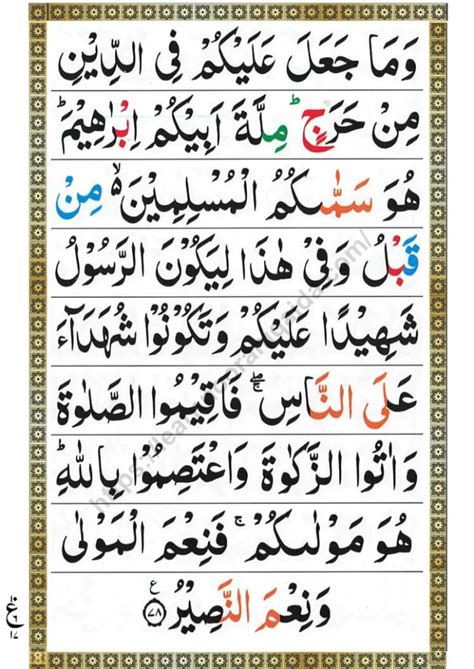 وَمَا جَعَلَ عَلَيْكُمْ فِى الدِّيْنِ
مِنْ حَرَجٍ ؕ مِلَّةَ اَبِيْكُمْ اِبْرٰهِيْمَ ؕ
هُوَ سَمّٰٮكُمُ الْمُسْلِمِيْنَ ۙ مِنْ
قَبْلُ وَفِىْ هٰذَا لِيَكُوْنَ الرَّسُوْلُ
شَهِيْدًا عَلَيْكُمْ وَتَكُوْنُوْا شُهَدَآءَ
عَلَى النَّاسِ ۖۚ فَاَقِيْمُوا الصَّلٰوةَ
وَاٰتُوا الزَّكٰوةَ وَاعْتَصِمُوْا بِاللّٰهِ ؕ
هُوَ مَوْلٰٮكُمْ ۚ فَنِعْمَ الْمَوْلٰى
وَنِعْمَ النَّصِيْرُ ع ﴿۷۸﴾